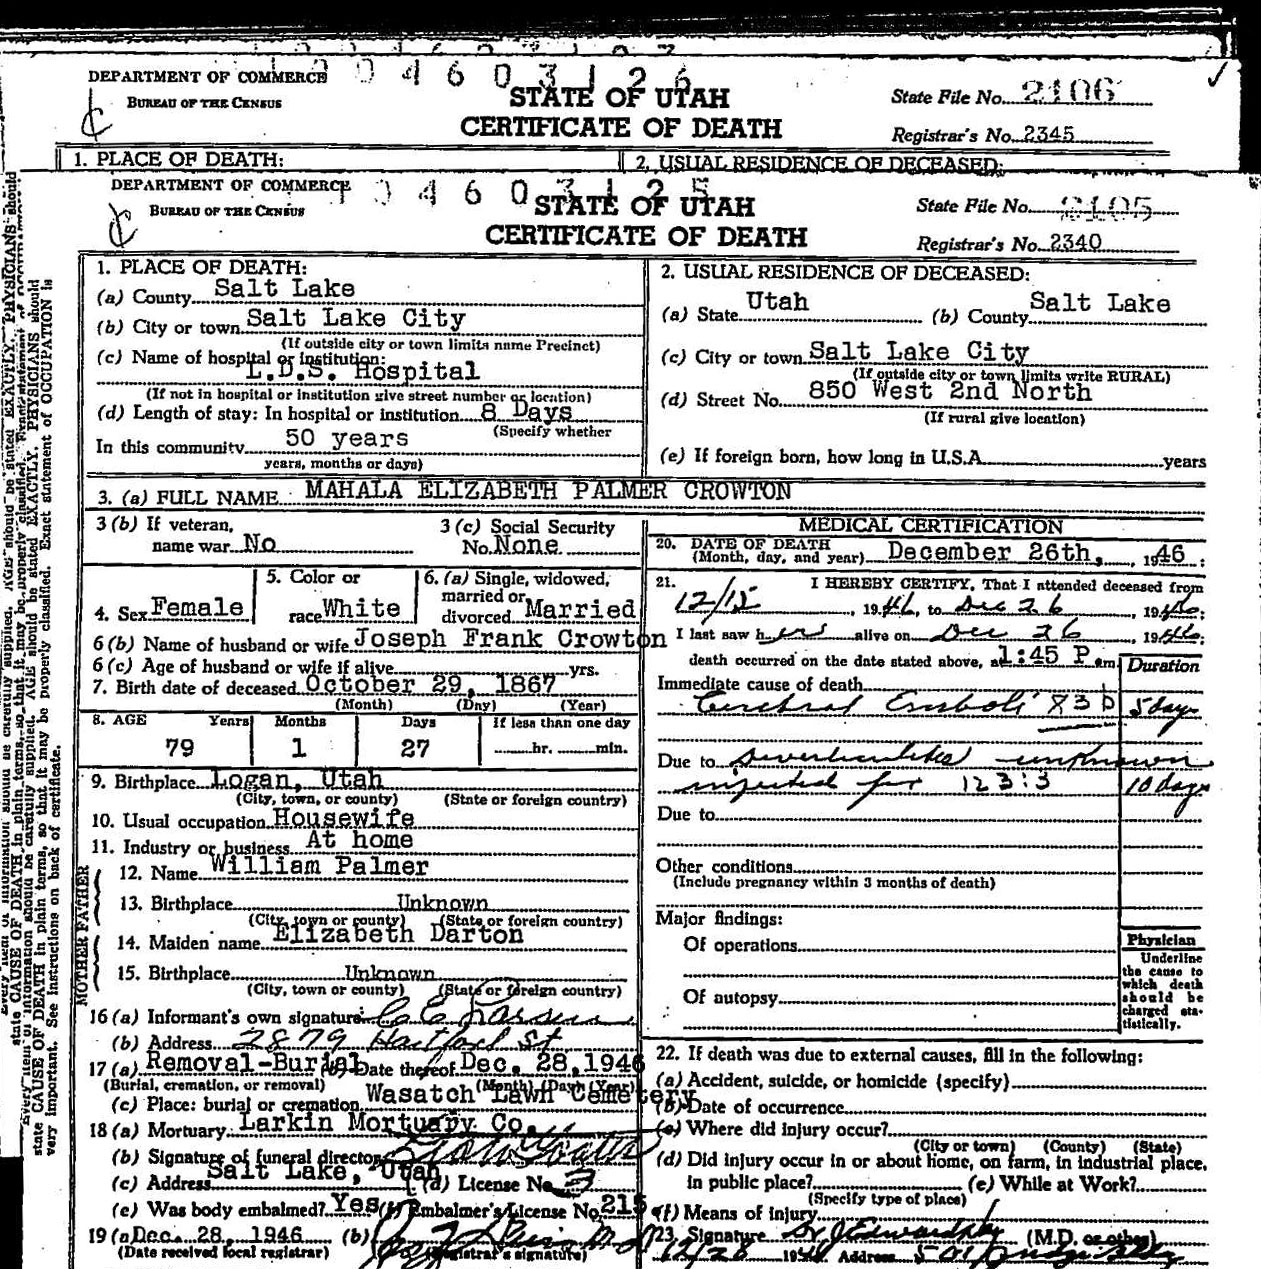 1 0 4 6 0 3 1 2 6
DEPARTMENT OF COMMERCE
BUREAU OF THE CENSUS
STATE OF UTAH
CERTIFICATE OF DEATH
State File No. 2106
Registrar's No. 2345
1. PLACE OF DEATH:
2. USUAL RESIDENCE OF DECEASED:
1 0 4 6 0 3 1 2 5
DEPARTMENT OF COMMERCE
BUREAU OF THE CENSUS
STATE OF UTAH
CERTIFICATE OF DEATH
State File No. 2105
Registrar's No. 2340
1. PLACE OF DEATH:
(a) County Salt Lake
(b) City or town Salt Lake City
(If outside city or town limits name Precinct)
(c) Name of hospital or institution:
L.D.S. Hospital
(If not in hospital or institution give street number or location)
(d) Length of stay: In hospital or institution 8 Days
(Specify whether
In this community 50 years
years, months or days)
2. USUAL RESIDENCE OF DECEASED:
(a) State Utah (b) County Salt Lake
(c) City or town Salt Lake City
(If outside city or town limits write RURAL)
(d) Street No. 850 West 2nd North
(If rural give location)
(e) If foreign born, how long in U.S.A. years
3. (a) FULL NAME MAHALA ELIZABETH PALMER CROWTON
3 (b) If veteran,
name war No
3 (c) Social Security
No. None
4. Sex Female
5. Color or
race White
6. (a) Single, widowed,
married or
divorced Married
6 (b) Name of husband or wife Joseph Frank Crowton
6 (c) Age of husband or wife if alive yrs.
7. Birth date of deceased October 29, 1867
(Month) (Day) (Year)
8. AGE Years Months Days If less than one day
79 1 27 hr. min.
9. Birthplace Logan, Utah
(City, town, or county) (State or foreign country)
10. Usual occupation Housewife
11. Industry or business At home
FATHER
12. Name William Palmer
13. Birthplace Unknown
(City, town or county) (State or foreign country)
MOTHER
14. Maiden name Elizabeth Darton
15. Birthplace Unknown
(City, town or county) (State or foreign country)
16 (a) Informant's own signature C E Larsen
(b) Address 2879 Hartford St
17 (a) Removal-Burial (b) Date thereof Dec. 28, 1946
(Burial, cremation, or removal) (Month) (Day) (Year)
(c) Place: burial or cremation Wasatch Lawn Cemetery
18 (a) Mortuary Larkin Mortuary Co.
(b) Signature of funeral director
(c) Address Salt Lake, Utah (d) License No. 3
(e) Was body embalmed? Yes (f) Embalmer's License No. 215
19 (a) Dec. 28, 1946 (b)
(Date received local registrar) (Registrar's signature)
MEDICAL CERTIFICATION
20. DATE OF DEATH
(Month, day, and year) December 26th, 1946:
21. I HEREBY CERTIFY, That I attended deceased from
12/15, 1946, to Dec 26, 1946;
I last saw her alive on Dec 26, 1946;
death occurred on the date stated above, at 1:45 P. m.
Duration
Immediate cause of death
Cerebral Emboli 83b 5 days
Due to unknown
for 123:3 10 days
Due to
Other conditions
(Include pregnancy within 3 months of death)
Major findings:
Of operations
Of autopsy
Physician
Underline
the cause to
which death
should be
charged sta-
tistically.
22. If death was due to external causes, fill in the following:
(a) Accident, suicide, or homicide (specify)
(b) Date of occurrence
(c) Where did injury occur?
(City or town) (County) (State)
(d) Did injury occur in or about home, on farm, in industrial place,
in public place? (e) While at Work?
(Specify type of place)
(f) Means of injury
23. Signature (M.D. or other)
12/26 1946 Address
state CAUSE OF DEATH in plain terms, so that it may be properly classified. Exact statement of OCCUPATION is
very important. See instructions on back of certificate.